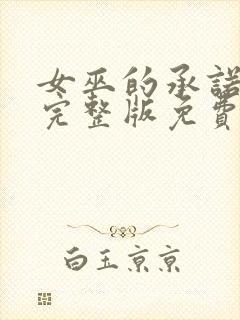 女巫的承諾
完整版免費
白玉京京